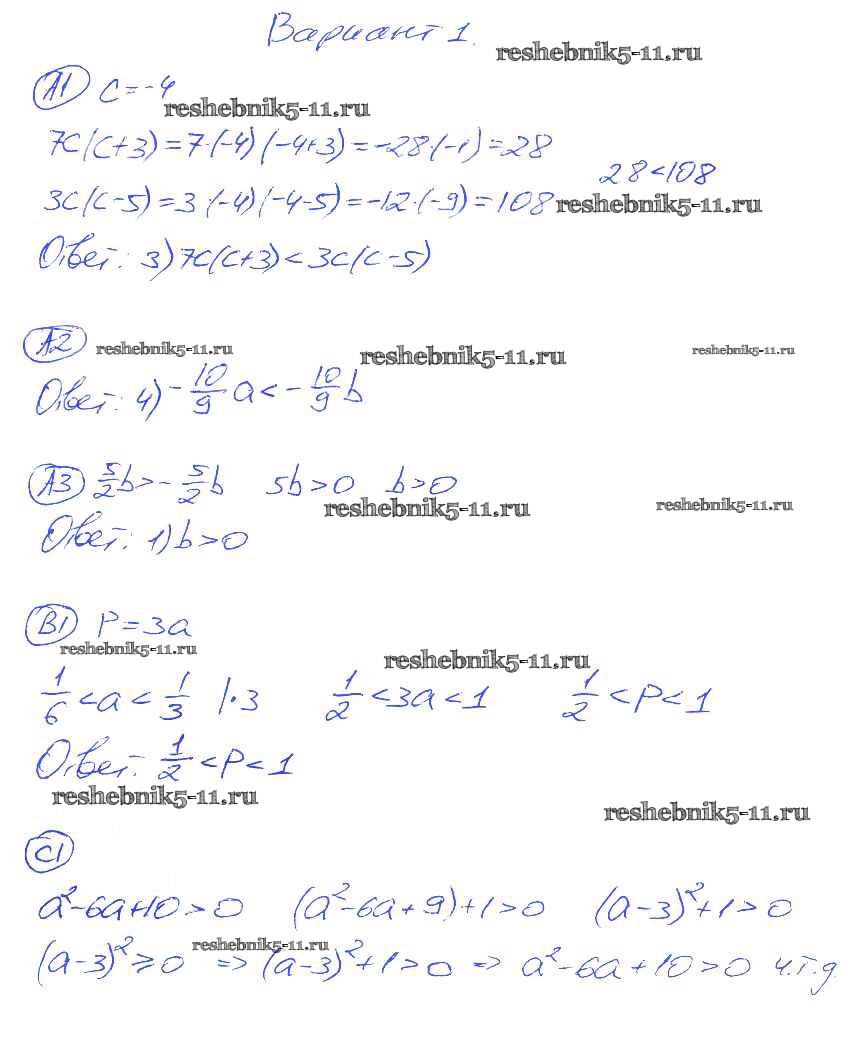 Вариант 1.
reshebnik5-11.ru
А1 c=-4
reshebnik5-11.ru
7c(c+3)=7·(-4)(-4+3)=-28·(-1)=28
28<108
3c(c-5)=3·(-4)(-4-5)=-12·(-9)=108 reshebnik5-11.ru
Ответ: 3) 7c(c+3)<3c(c-5)
А2 reshebnik5-11.ru reshebnik5-11.ru reshebnik5-11.ru
Ответ: 4) -10/9 a < -10/9 b
А3 5/2 b > -5/2 b 5b>0 b>0
reshebnik5-11.ru reshebnik5-11.ru
Ответ: 1) b>0
В1 P=3a
reshebnik5-11.ru reshebnik5-11.ru
1/6 < a < 1/3 |·3 1/2 < 3a < 1 1/2 < P < 1
Ответ: 1/2 < P < 1
reshebnik5-11.ru reshebnik5-11.ru
С1
a²-6a+10>0 (a²-6a+9)+1>0 (a-3)²+1>0
reshebnik5-11.ru
(a-3)²⩾0 => (a-3)²+1>0 => a²-6a+10>0 ч.т.д